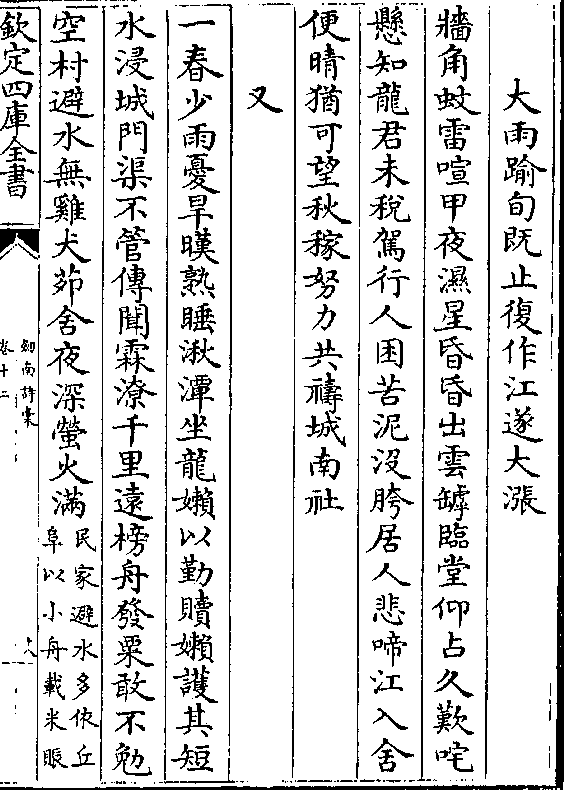 大雨踰旬既止復作江遂大漲
牆角蚊雷喧甲夜濕星昏昏出雲罅臨堂仰占久歎咤
懸知龍君未稅駕行人困苦泥没胯居人悲啼江入舍
便晴猶可望秋稼努力共禱城南社
又
一春少雨憂旱暵熟睡湫潭坐龍嬾以勤贖嬾護其短
水浸城門渠不管傳聞霖潦千里遠榜舟發粟敢不勉
空村避水無雞犬茆舍夜深螢火滿民家避水多依丘
阜以小舟載米賑
欽定四庫全書
劒南詩稾
卷十二
十八